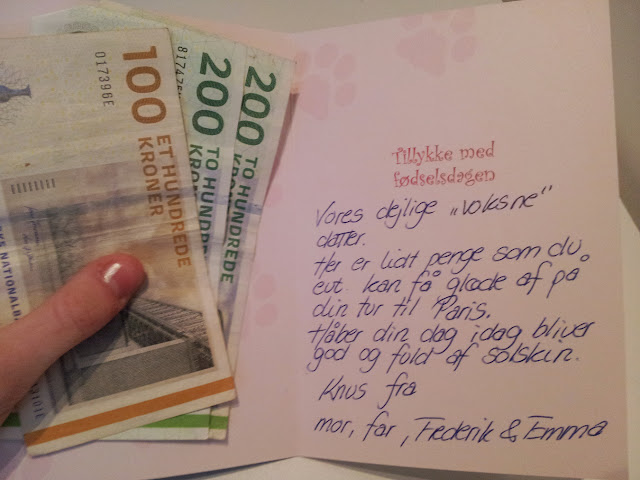 100
ET HUNDREDE
KRONER
017396E
200
TO HUNDREDE
200
TO HUNDREDE
KRONER
Tillykke med
fødselsdagen
Vores dejlige „voksne"
datter.
Her er lidt penge som du
evt. kan få glæde af på
din tur til Paris.
Håber din dag idag bliver
god og fuld af solskin.
Knus fra
mor, far, Frederik & Emma